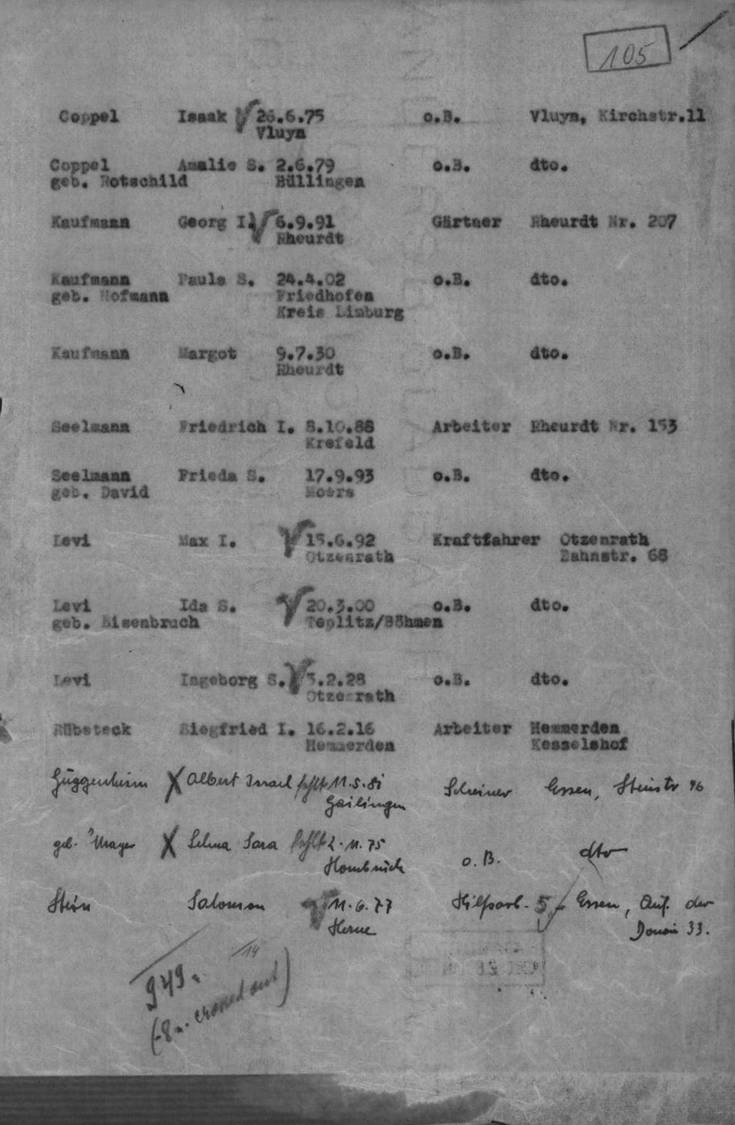 105
Coppel Isaak 26.6.75 o.B. Vluyn, Kirchstr.11
Vluyn
Coppel Amalie S. 2.6.79 o.B. dto.
geb. Rotschild Büllingen
Kaufmann Georg I. 6.9.91 Gärtner Rheurdt Nr. 207
Rheurdt
Kaufmann Paula S. 24.4.02 o.B. dto.
geb. Hofmann Friedhofen
Kreis Limburg
Kaufmann Margot 9.7.30 o.B. dto.
Rheurdt
Seelmann Friedrich I. 8.10.88 Arbeiter Rheurdt Nr. 153
Krefeld
Seelmann Frieda S. 17.9.93 o.B. dto.
geb. David Moers
Levi Max I. 15.6.92 Kraftfahrer Otzenrath
Otzenrath Bahnstr. 68
Levi Ida S. 20.3.00 o.B. dto.
geb. Eisenbruch Teplitz/Böhmen
Levi Ingeborg S. 3.2.28 o.B. dto.
Otzenrath
Rübsteck Siegfried I. 16.2.16 Arbeiter Hemmerden
Hemmerden Kesselshof
Guggenheim X Albert Israel fehlt 11.5.81 Schreiner Essen, Steinstr
Gailingen
geb. Mayer X Selma Sara fehlt 2.11.75 o.B. dto
Hombruch
Stein Salomon 11.6.77 Hilfsarb. 5 Essen, Auf der
Herne Donau 33.
14
949.
(-8 . crossed out)